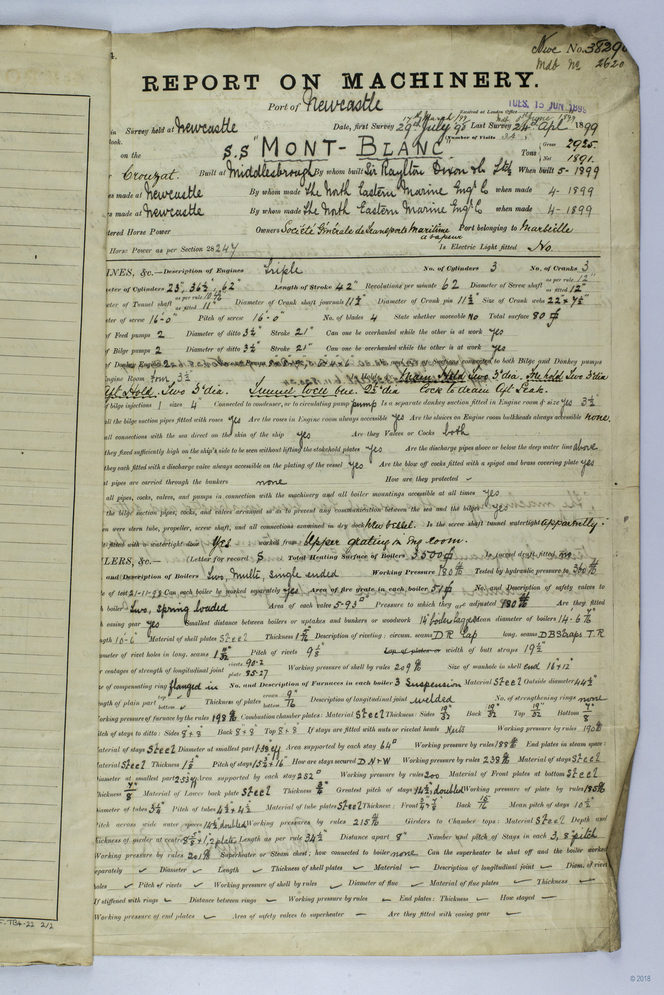 Nwc No. 38290
Mdb No 2620
REPORT ON MACHINERY.
Port of Newcastle
Received at London Office TUES. 13 JUN 1899
in Survey held at Newcastle Date, first Survey 29th July 98 Last Survey 24 Apl 1899
(Number of Visits
on the S.S "MONT-BLANC" Tons Gross 2925. Net 1891.
Crouzat. Built at Middlesbrough By whom built Sir Raylton Dixon & Co Ltd When built 5-1899
s made at Newcastle By whom made The North Eastern Marine Engg Co when made 4-1899
s made at Newcastle By whom made The North Eastern Marine Engg Co when made 4-1899
tered Horse Power Owners Société Générale de Transports Maritime a vapeur Port belonging to Marseille
Horse Power as per Section 28 247 Is Electric Light fitted No.
INES, &c.—Description of Engines Triple No. of Cylinders 3 No. of Cranks 3
eter of Cylinders 23", 36½", 62" Length of Stroke 42" Revolutions per minute 62 Diameter of Screw shaft as per rule 12" as fitted 12"
eter of Tunnel shaft as fitted 11" Diameter of Crank shaft journals 11½" Diameter of Crank pin 11½" Size of Crank webs 22" x 7½"
eter of screw 16-0" Pitch of screw 16-0" No. of blades 4 State whether moveable No Total surface 80
of Feed pumps 2 Diameter of ditto 3½" Stroke 21" Can one be overhauled while the other is at work yes
of Bilge pumps 2 Diameter of ditto 3½" Stroke 21" Can one be overhauled while the other is at work yes
of Donkey Engines connected to both Bilge and Donkey pumps
Engine Room Four 3½" Main Hold Two 3" dia. Two 3" dia
Aft Hold. Two 3" dia. Tunnel Well one 2½ dia Cock to drain Aft Peak.
of bilge injections 1 sizes 4" Connected to condenser, or to circulating pump pump Is a separate donkey suction fitted in Engine room & size yes 3½"
all the bilge suction pipes fitted with roses yes Are the roses in Engine room always accessible yes Are the sluices on Engine room bulkheads always accessible none.
all connections with the sea direct on the skin of the ship yes Are they Valves or Cocks both
they fixed sufficiently high on the ship's side to be seen without lifting the stokehold plates yes Are the discharge pipes above or below the deep water line above
they each fitted with a discharge valve always accessible on the plating of the vessel yes Are the blow off cocks fitted with a spigot and brass covering plate yes
t pipes are carried through the bunkers none How are they protected -
all pipes, cocks, valves, and pumps in connection with the machinery and all boiler mountings accessible at all times yes
the bilge suction pipes, cocks, and valves arranged so as to prevent any communication between the sea and the bilges yes
n were stern tube, propeller, screw shaft, and all connections examined in dry dock New vessel. Is the screw shaft tunnel watertight apparently.
fitted with a watertight door Yes worked from Upper grating in Eng room.
LERS, &c.— (Letter for record S Total Heating Surface of Boilers 3500 Is forced draft fitted no
and Description of Boilers Two, Multr, single ended Working Pressure 180 lb Tested by hydraulic pressure to 360 lb
of test 21-11-98 Can each boiler be worked separately yes Area of fire grate in each boiler 51 No. and Description of safety valves to
boiler Two, spring loaded Area of each valve 5.93" Pressure to which they are adjusted 180 lb Are they fitted
easing gear yes Smallest distance between boilers or uptakes and bunkers or woodwork 14" boiler lagged Mean diameter of boilers 14-6
ngth 10-6" Material of shell plates Steel Thickness Description of riveting: circum. seams D R lap long. seams D B Straps T.R
meter of rivet holes in long. seams Pitch of rivets 9 Lap of plates or width of butt straps 19½
rcentages of strength of longitudinal joint rivets 90.2 plate 85.27 Working pressure of shell by rules 209 lb Size of manhole in shell end 16x12"
e of compensating ring flanged in No. and Description of Furnaces in each boiler 3 Suspension Material Steel Outside diameter 44½"
gth of plain part top bottom Thickness of plates 9/16 Description of longitudinal joint welded No. of strengthening rings none
orking pressure of furnace by the rules 198 lb Combustion chamber plates: Material Steel Thickness: Sides 19/32 Back 19/32 Top 19/32 Bottom 7/8
itch of stays to ditto: Sides 8x8 Back 8x8 Top 8x8 If stays are fitted with nuts or riveted heads Nuts Working pressure by rules 190 lb
aterial of stays Steel Diameter at smallest part Area supported by each stay 64" Working pressure by rules 188 lb End plates in steam space:
aterial Steel Thickness Pitch of stays How are stays secured D.N+W Working pressure by rules 238 lb Material of stays Steel
iameter at smallest part Area supported by each stay 252" Working pressure by rules 200 Material of Front plates at bottom Steel
hickness 7/8" Material of Lower back plate Steel Thickness Greatest pitch of stays 14½" doubled Working pressure of plate by rules 185 lb
iameter of tubes 3¼" Pitch of tubes 4½ x 4½ Material of tube plates Steel Thickness: Front Back Mean pitch of stays 10½"
itch across wide water spaces 14½" doubled Working pressures by rules 215 lb Girders to Chamber tops: Material Steel Depth and
hickness of girder at centre Length as per rule 34½" Distance apart 8" Number and pitch of Stays in each 3, 8" pitch
Working pressure by rules 201 lb Superheater or Steam chest; how connected to boiler none Can the superheater be shut off and the boiler worked
eparately Diameter Length Thickness of shell plates Material Description of longitudinal joint Diam. of rivet
holes Pitch of rivets Working pressure of shell by rules Diameter of flue Material of flue plates Thickness
If stiffened with rings Distance between rings Working pressure by rules End plates: Thickness How stayed
Working pressure of end plates Area of safety valves to superheater Are they fitted with easing gear
© 2018